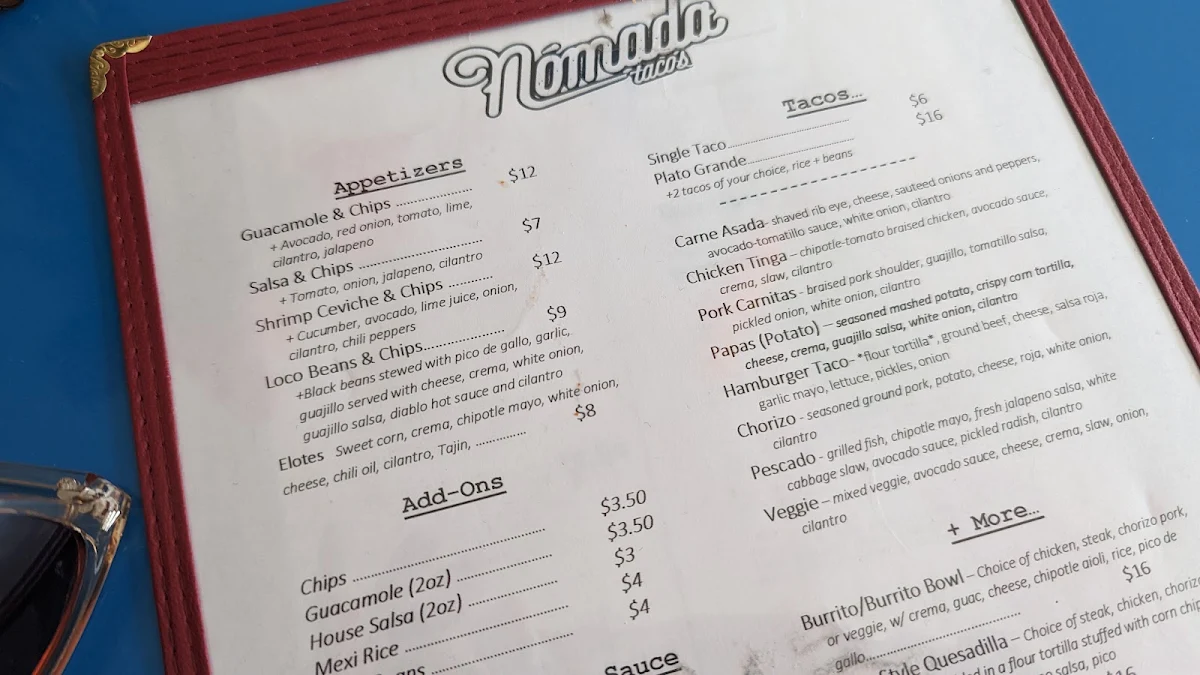 Nómada
tacos
Appetizers
Guacamole & Chips .................. $12
+ Avocado, red onion, tomato, lime,
cilantro, jalapeno
Salsa & Chips ............................. $7
+ Tomato, onion, jalapeno, cilantro
Shrimp Ceviche & Chips .......... $12
+ Cucumber, avocado, lime juice, onion,
cilantro, chili peppers
Loco Beans & Chips................... $9
+Black beans stewed with pico de gallo, garlic,
guajillo served with cheese, crema, white onion,
guajillo salsa, diablo hot sauce and cilantro
Elotes Sweet corn, crema, chipotle mayo, white onion,
cheese, chili oil, cilantro, Tajin, ............ $8
Add-Ons
Chips ............................................. $3.50
Guacamole (2oz) ...................... $3.50
House Salsa (2oz) ..................... $3
Mexi Rice ...................................... $4
ans ................................ $4
Sauce
Tacos…
Single Taco............................ $6
Plato Grande........................ $16
+2 tacos of your choice, rice + beans
--------------------
Carne Asada- shaved rib eye, cheese, sauteed onions and peppers,
avocado-tomatillo sauce, white onion, cilantro
Chicken Tinga – chipotle-tomato braised chicken, avocado sauce,
crema, slaw, cilantro
Pork Carnitas - braised pork shoulder, guajillo, tomatillo salsa,
pickled onion, white onion, cilantro
Papas (Potato) – seasoned mashed potato, crispy corn tortilla,
cheese, crema, guajillo salsa, white onion, cilantro
Hamburger Taco- *flour tortilla* , ground beef, cheese, salsa roja,
garlic mayo, lettuce, pickles, onion
Chorizo - seasoned ground pork, potato, cheese, roja, white onion,
cilantro
Pescado - grilled fish, chipotle mayo, fresh jalapeno salsa, white
cabbage slaw, avocado sauce, pickled radish, cilantro
Veggie – mixed veggie, avocado sauce, cheese, crema, slaw, onion,
cilantro
+ More…
Burrito/Burrito Bowl – Choice of chicken, steak, chorizo pork,
or veggie, w/ crema, guac, cheese, chipotle aioli, rice, pico de
gallo.......................................... $16
Style Quesadilla – Choice of steak, chicken, chorizo
ed in a flour tortilla stuffed with corn chip
salsa, pico
$16